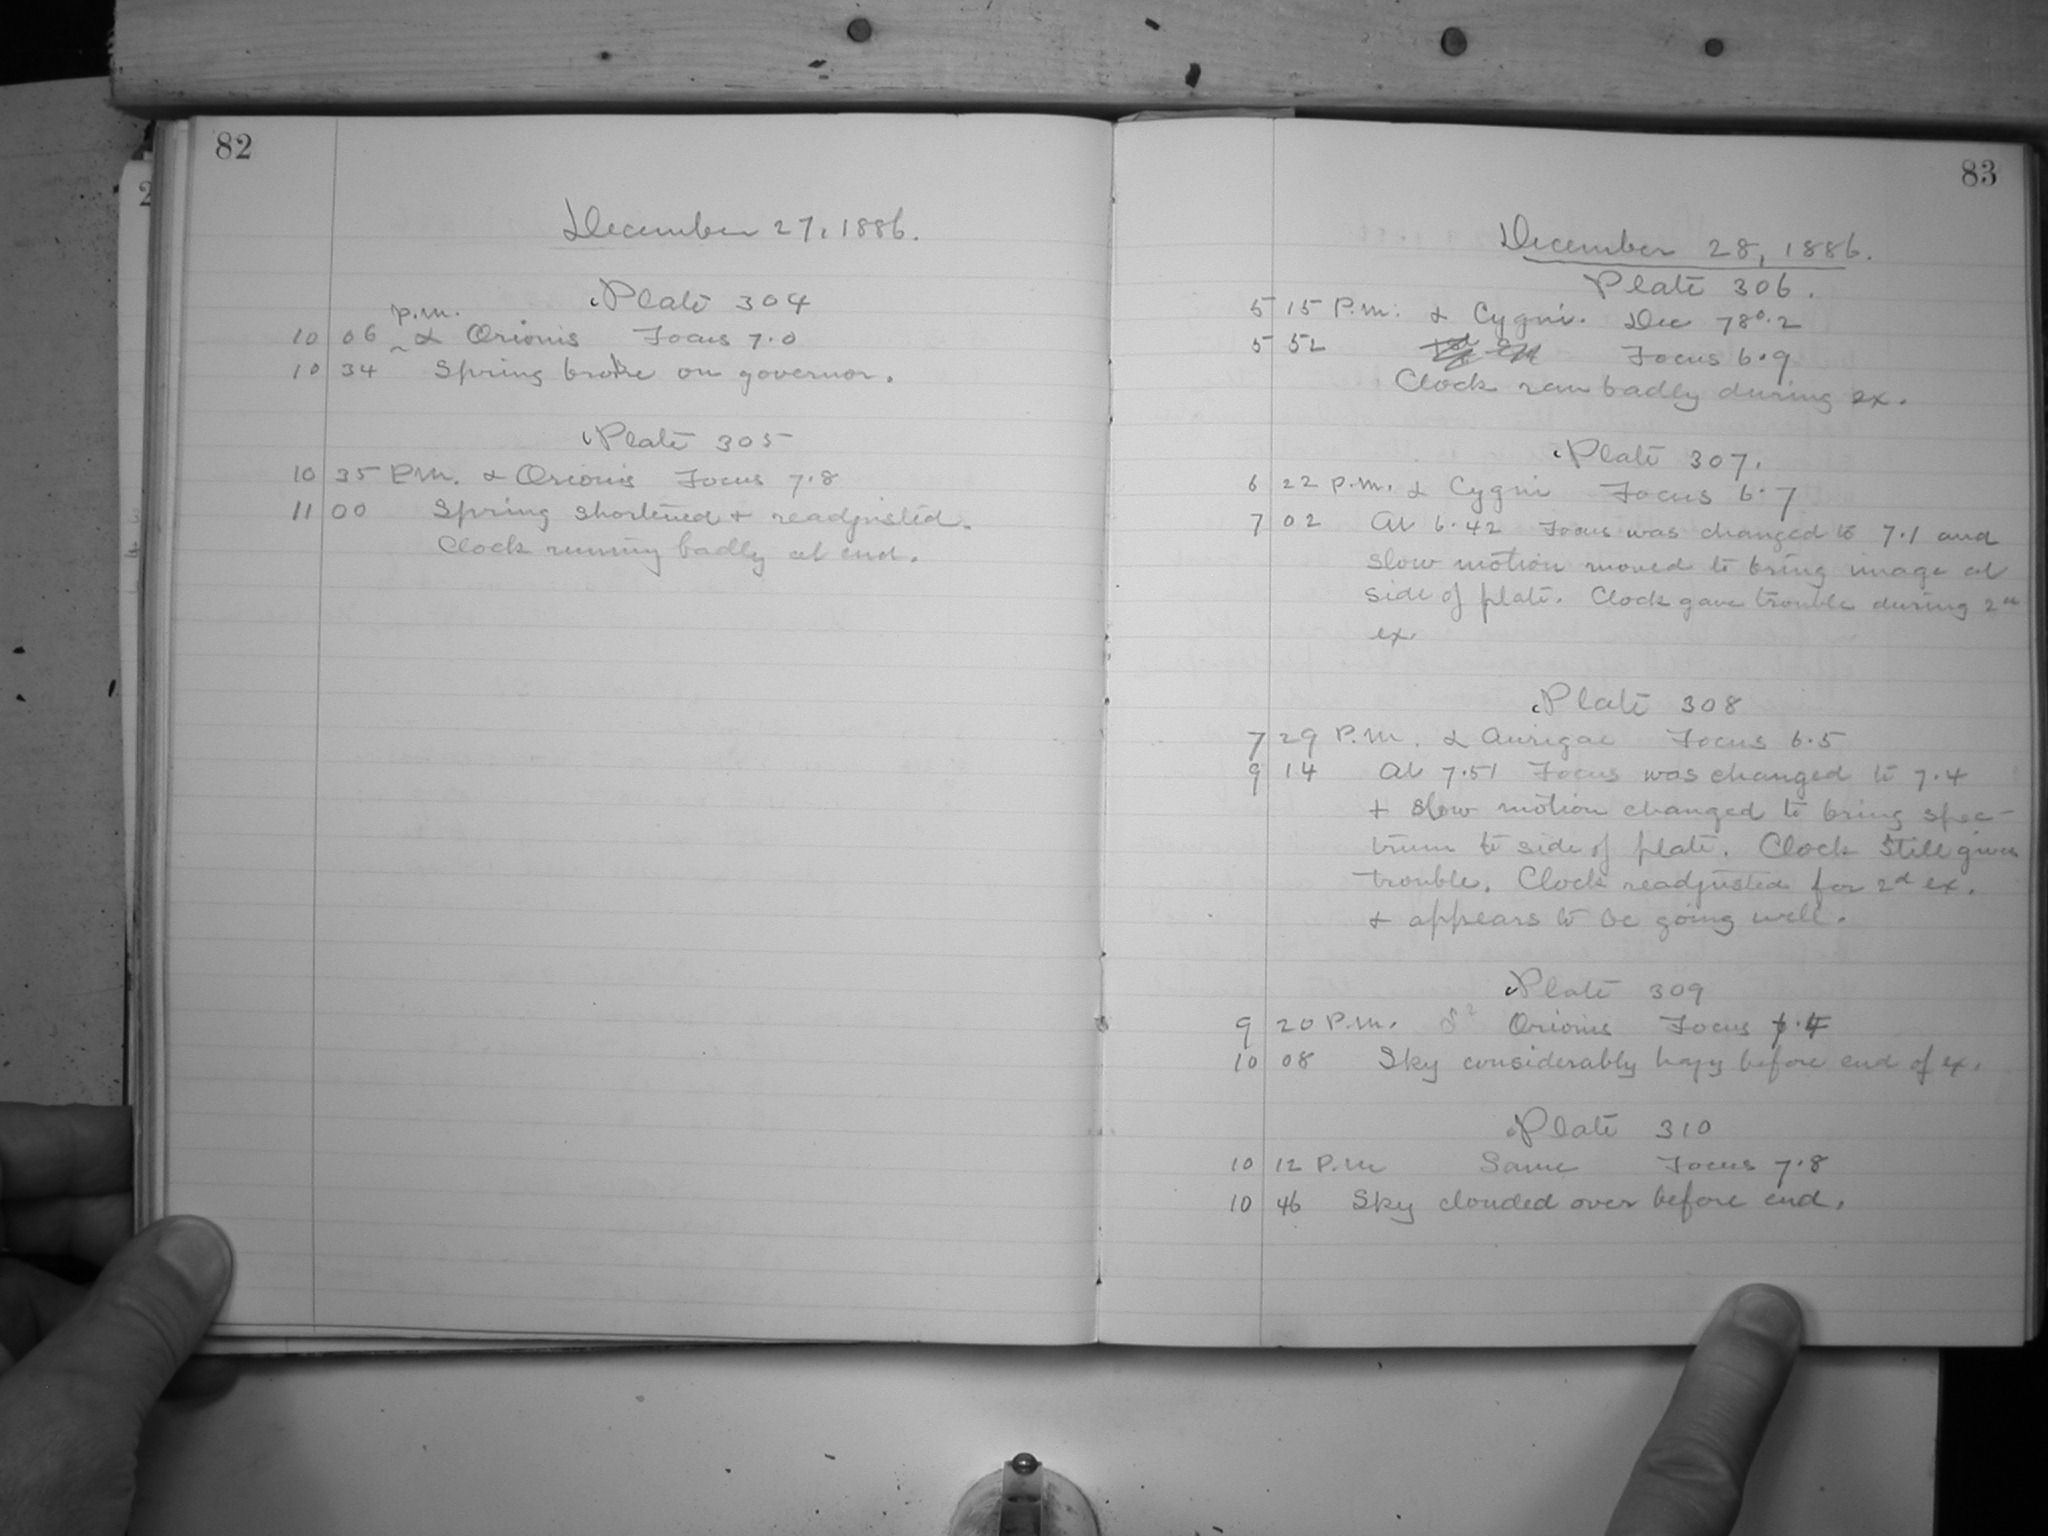 82
December 27, 1886.
Plate 304
p.m.
10 06 α Orionis Focus 7.0
10 34 Spring broke on governor.
Plate 305
10 35 P.M. α Orionis Focus 7.8
11 00 Spring shortened + readjusted.
Clock running badly at end.
83
December 28, 1886.
Plate 306.
5 15 P.m. α Cygni. Dec 78°.2
5 52 Focus 6.9
Clock ran badly during ex.
Plate 307.
6 22 p.m. α Cygni Focus 6.7
7 02 At 6.42 Focus was changed to 7.1 and
slow motion moved to bring image at
side of plate. Clock gave trouble during 2d
ex.
Plate 308
7 29 P.M. α Aurigae Focus 6.5
9 14 At 7.51 Focus was changed to 7.4
+ slow motion changed to bring spec-
trum to side of plate. Clock still gives
trouble. Clock readjusted for 2d ex.
+ appears to be going well.
Plate 309
9 20 P.m. Orionis Focus
10 08 Sky considerably hazy before end of ex.
Plate 310
10 12 P.m Same Focus 7.8
10 46 Sky clouded over before end.